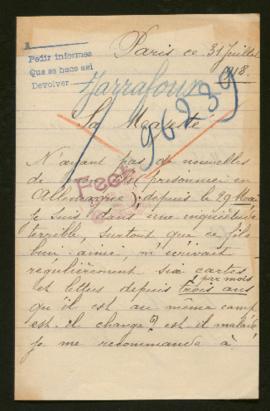 Paris ce 31 Juillet
1918.
Pedir informes
Que se hace así
Devolver
96239
Sa Majesté
N'ayant pas de nouvelles
de mon fils prisonnier en
Allemagne depuis le 29 Mai
je suis dans une inquiétude
terrible, surtout que ce fils
bien aimé, m'écrivait
regulièrement six cartes
par mois
et lettres depuis trois ans
qu'il est au même camp
est-il changé? est-il malade
je me recommande à